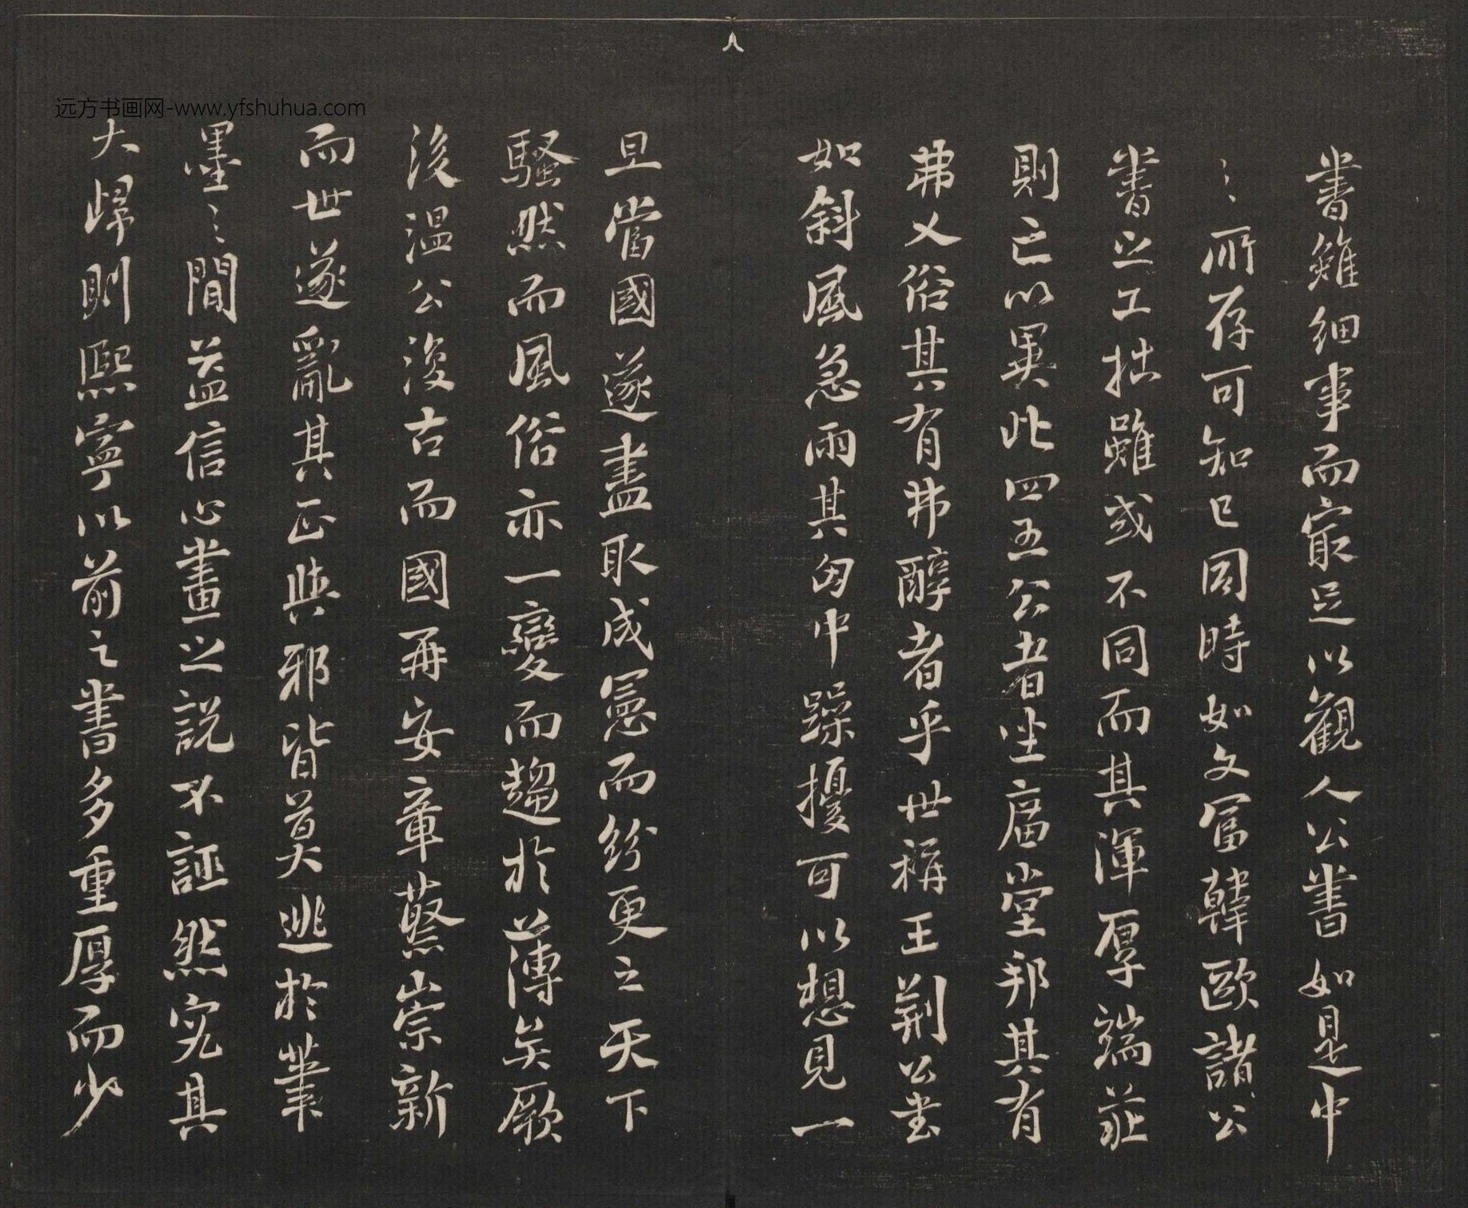 書雖細事而寂足以觀人公書如是中
〻所存可知已同時如文富韓歐諸公
書之工拙雖或不同而其渾厚端莊
則亡以異此四五公者坐廟堂邦其有
弗乂俗其有弗醇者乎世稱王荆公書
如斜風急雨其匈中躁擾可以想見一
旦當國遂盡取成憲而紛更之天下
騷然而風俗亦一變而趨於薄矣厥
後溫公復古而國再安章蔡崇新
而世遂亂其正與邪皆莫逃於筆
墨〻間益信心畫之說不誣然究其
大歸則熙寧以前之書多重厚而少
八
远方书画网-www.yfshuhua.com